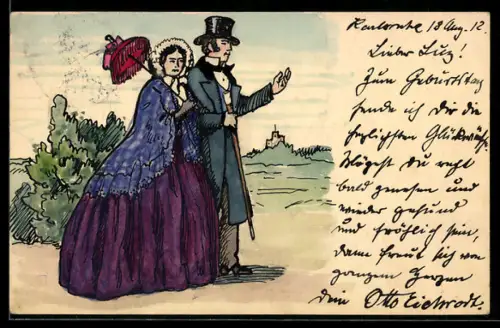 Karlsruhe 18 Aug. 12.
Lieber Lutz!
Zum Geburtstag
sende ich Dir die
herzlichsten Glückwünsche
Mögest Du recht
bald genesen und
wieder gesund
und fröhlich sein,
dann freut sich von
ganzem Herzen
dein Otto Eichrodt.